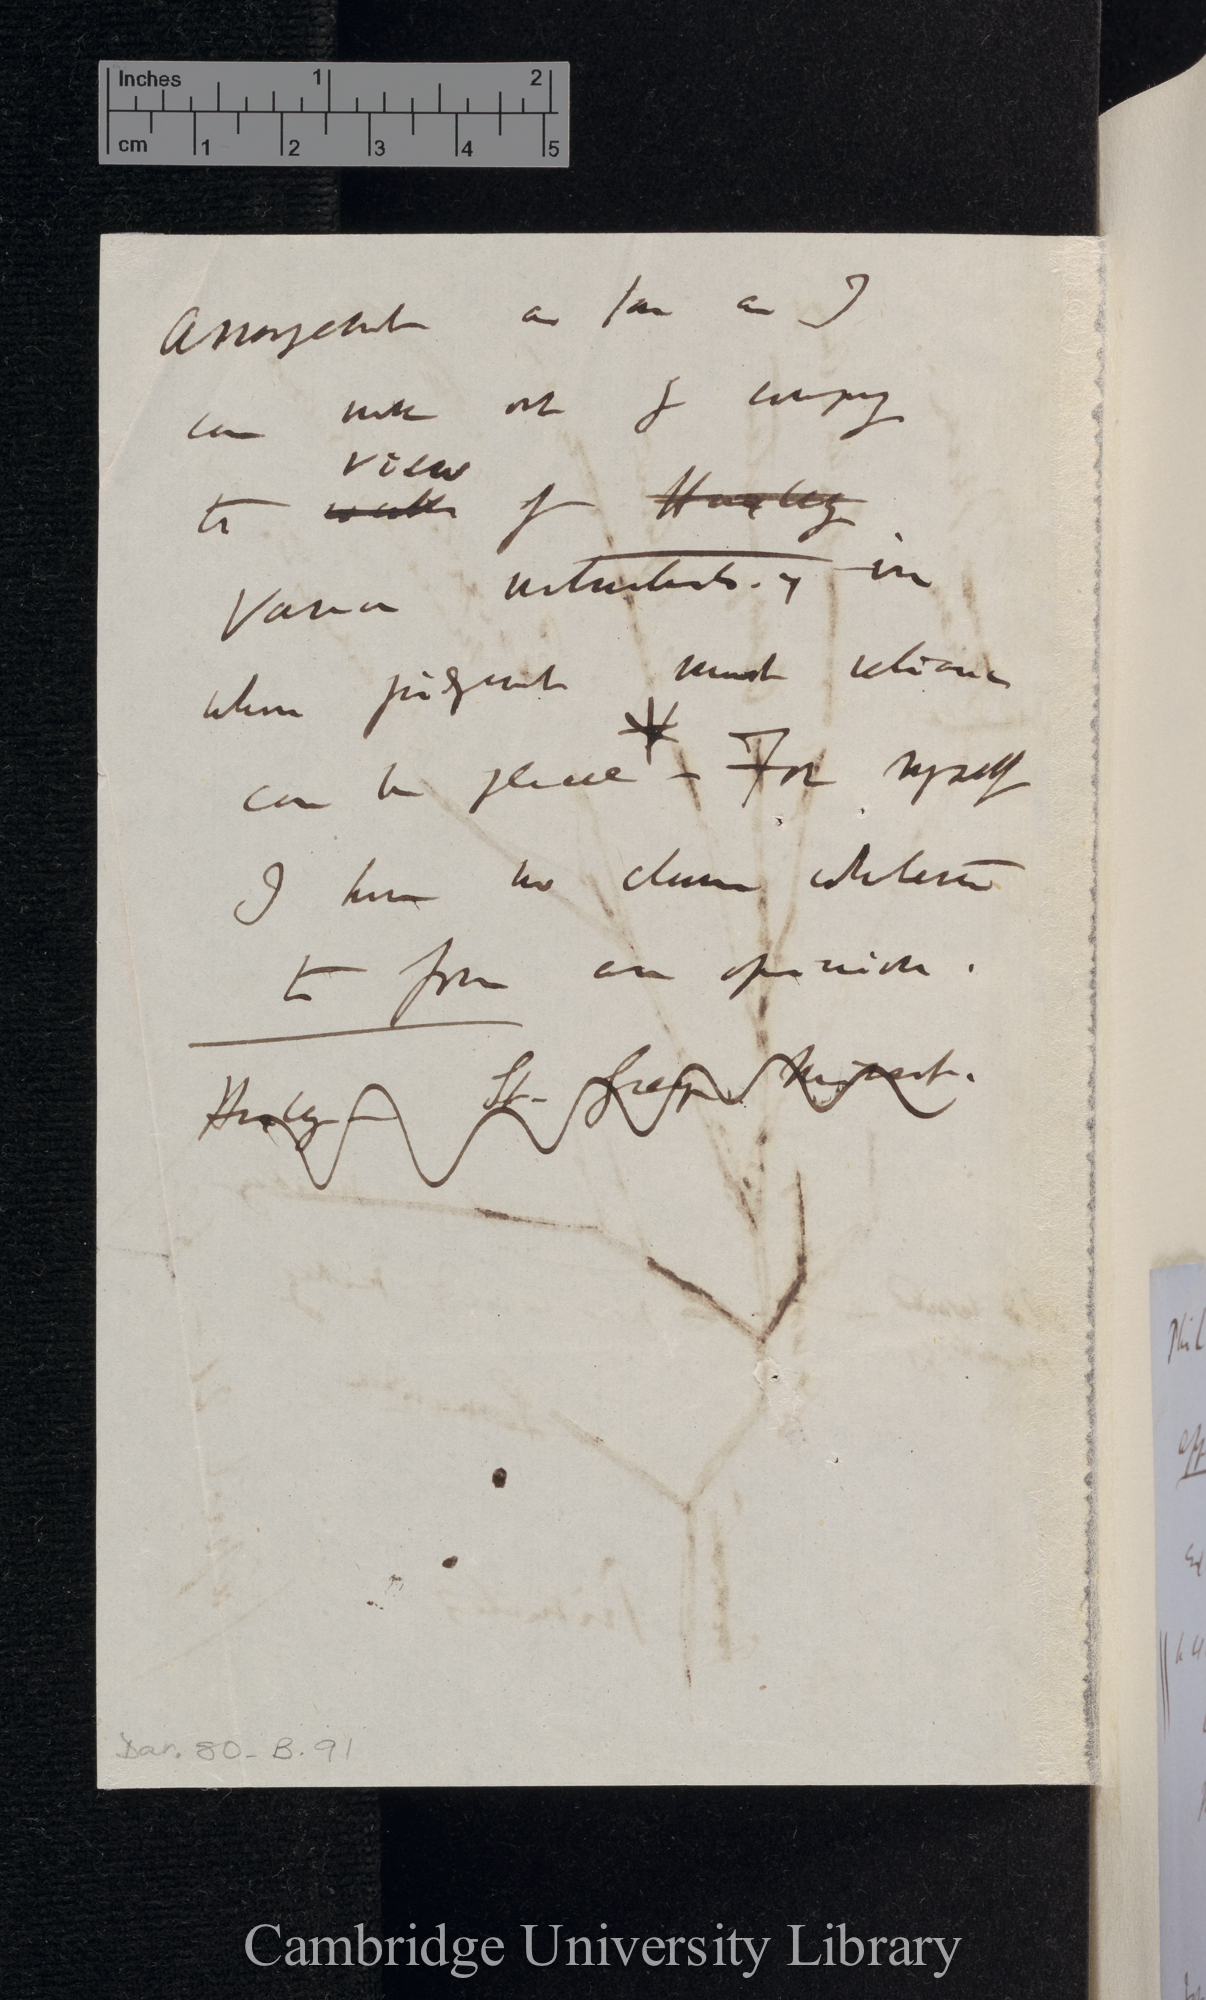 Inches 1 2
cm 1 2 3 4 5
Arrangement as far as I
can make out by comparing
the view works of Huxley
various naturalists. in
whose judgment most reliance
can be placed — For myself
I have no claim whatever
to form an opinion.
Huxley — St. George Mivart.
Dar. 80 - B. 91
Cambridge University Library